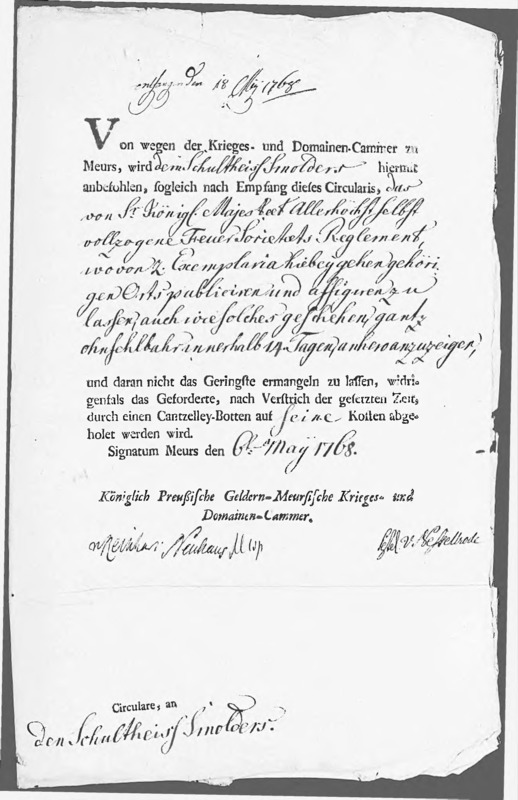 den 18 May 1768
Von wegen der Krieges- und Domainen-Cammer zu
Meurs, wird dem Schultheiss Smolders hiermit
anbefohlen, sogleich nach Empfang dieses Circularis, das
von Sr Königl. Majestaet Allerhöchst selbst
vollzogene Feuer Societets Reglement,
wovon 2 Exemplaria hiebey gehen gehöri-
gen Orts publiciren und affigiren zu
lassen, auch wie solches geschehen, gantz
ohnfehlbahr innerhalb 14 Tagen, anhero anzuzeigen,
und daran nicht das Geringste ermangeln zu lassen, widri-
genfals das Geforderte, nach Verstrich der gesetzten Zeit,
durch einen Cantzelley-Botten auf seine Kosten abge-
holet werden wird.
Signatum Meurs den 6t May 1768.
Königlich Preußische Geldern-Meursische Krieges- und
Domainen-Cammer.
Neuhaus v. Nesselrode
Circulare, an
den Schultheiss Smolders.